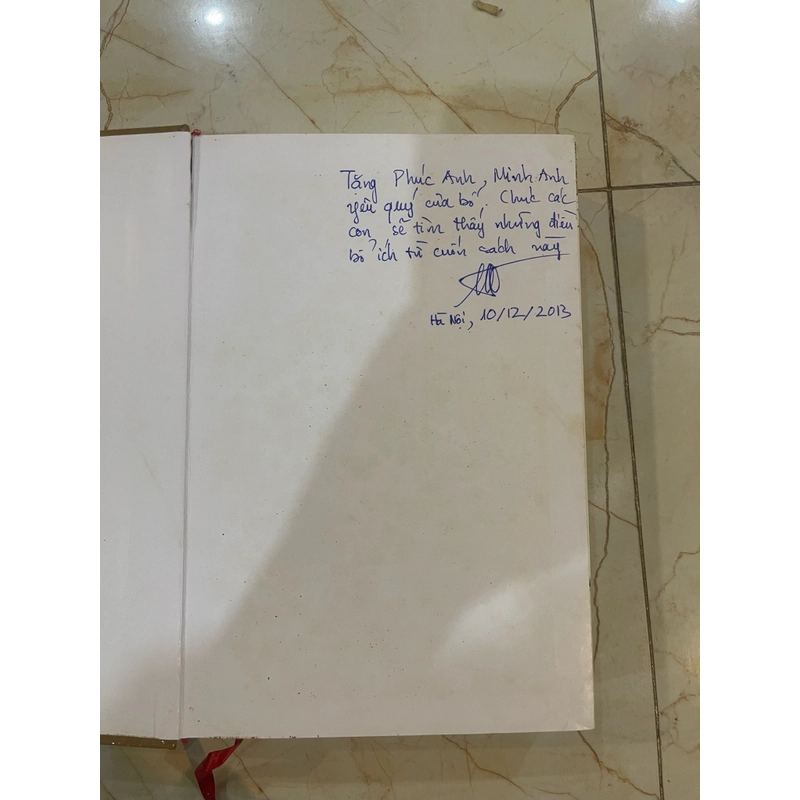 Tặng Phúc Anh, Minh Anh
yêu quý của bố. Chúc các
con sẽ tìm thấy những điều
bổ ích từ cuốn sách này
Hà Nội, 10/12/2013